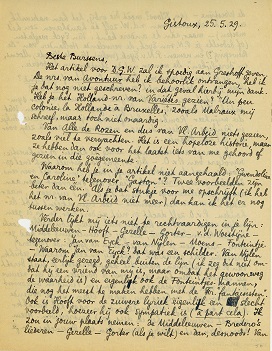 Gistoux, 25.5.29.
Beste Burssens,
Het artikel voor D.G.W. zal ik spoedig aan Greshoff geven.
De nrs van Avontuur heb ik behoorlijk ontvangen; heb ik
je dat nog niet geschreven? in dat geval hierbij mijn dank.
Heb je het Holland-nr. van Variétés gezien? "Un peu
colonie, la Hollande à Bruxelles", zoals Malraux mij
schreef, maar toch niet onaardig.
Van Alle de Rozen en dus van Vl. Arbeid niets gezien,
zoals wel te verwachten. Het is een hopeloze historie, maar
ze hebben dan ook voor het laatst iets van me gehoord en
gezien en die zoogemeente.
Waarom heb je in artikel niet aangehaald: "Gwendoline
en Caroline" inplaats van "Gasten"? Twee voorbeelden zijn
beter dan één. Als je dat stukje voor me opschrijft (ik heb
het nr. van Vl. Arbeid niet meer) dan kan ik het er nog
tussen werken.
Verder lijkt mij iets niet te rechtvaardigen in je lijn:
Middeleeuwen - Hooft - Gezelle - Gorter - v.d. Woestijne
tegenover: Jan van Eyck - van Nijlen - Moens - Fonteintje.
Waarom Jan van Eyck? dat was een schilder. Van Nijlen
staat, eerlijk gezegd, geheel buiten de lijn (ik zeg dit niet om-
dat hij een vriend van mij is, maar omdat het gewoonweg
de waarheid is) en eigenlijk ook de Fonteintje-mannen,
die nog het meest te maken hebben met de fr. fantaisisten.
Ook is Hooft voor de zuivere lyriek eigenlijk een slecht
voorbeeld, hoezeer hij ook sympathiek is (à part cela). Ik
zou in jouw plaats nemen: de Middeleeuwen - Bredero's
liederen - Gezelle - Gorter (als je wilt) en dan, desnoods: Van